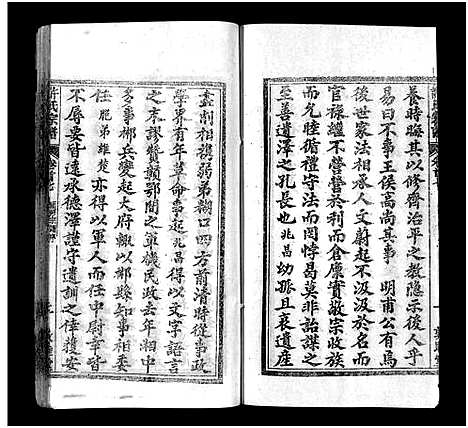 養時晦其以修齊治平之教隱示後人乎
易曰不事王侯高尚其事　明甫公有焉
近世家法相承人文蔚起不汲汲於名而
官祿繼不營營於利而倉庫實敬宗收族
而允睦循禮守法而罔悖曷莫非詒謀之
至善遺澤之孔長也　兆昌幼孤且哀遺產
盡割相携弱弟糊口四方前清時從事政
學界有年革命事起兆昌得以文字語言
之末謬贊鄂閫之軍機民政去年湘中
多事郴兵變起大府輒以郴縣知事相委
任胞弟雄楚亦得以軍人而任中尉幸皆
不辱要皆遠承德澤謹守遺訓之倖獲安
許氏宗譜